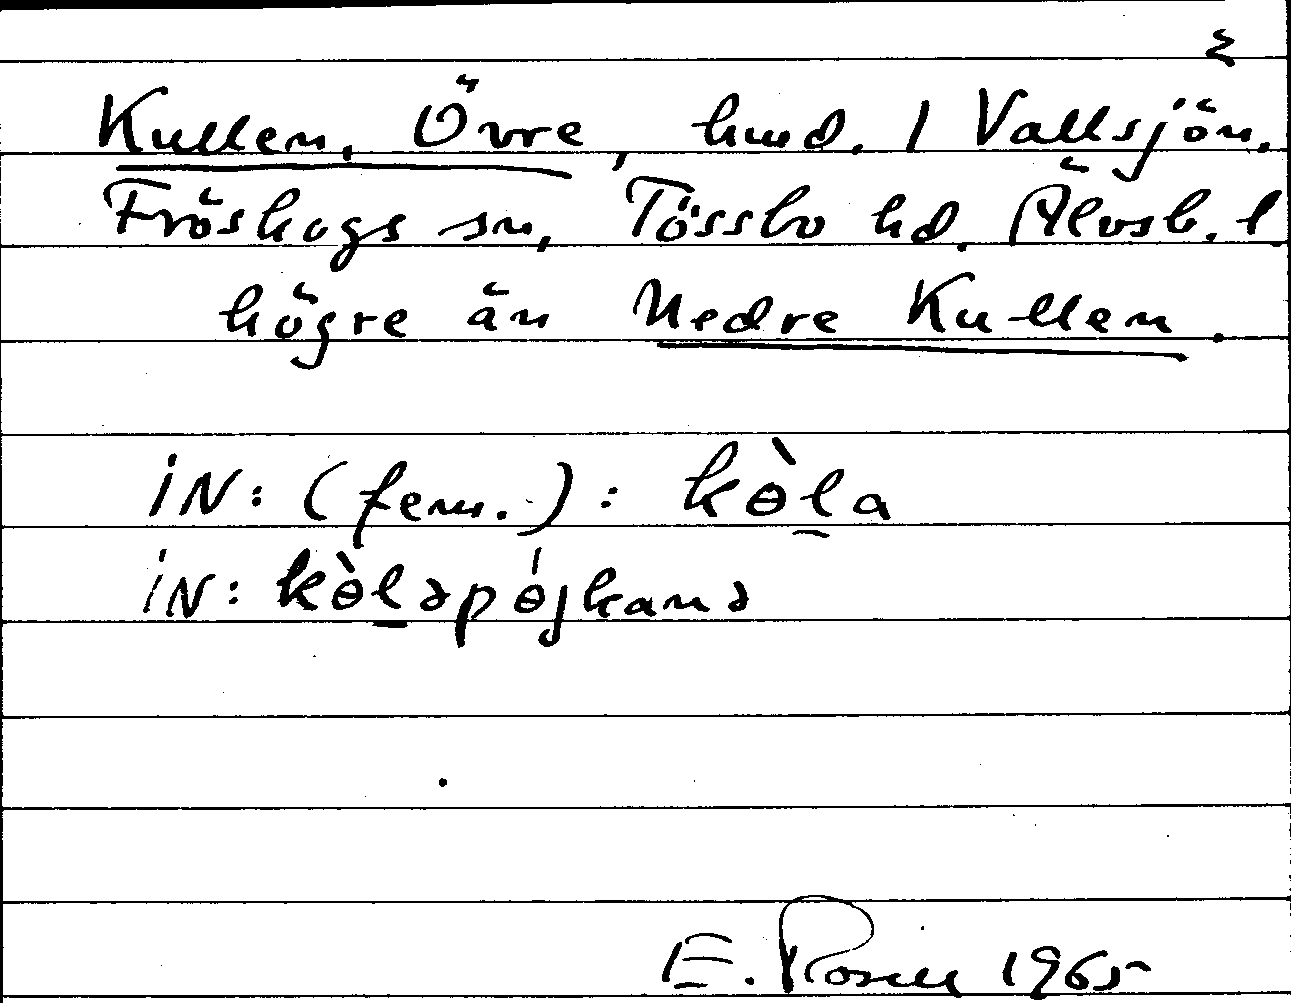 Kullen, Övre, hmd. / Vallsjön.
Fröskogs sn, Tössbo hd. Älvsb. l.
högre än Nedre Kullen.
iN: (fem.): kɵ̀l̠a
iN: kɵ̀l̠əpɵ́jkanə
E. Rosell 1965